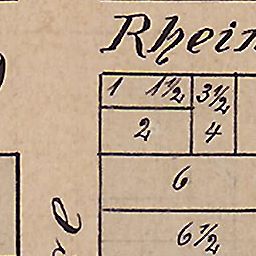 Rhein
1 1½ 3½
2 4
6
6½